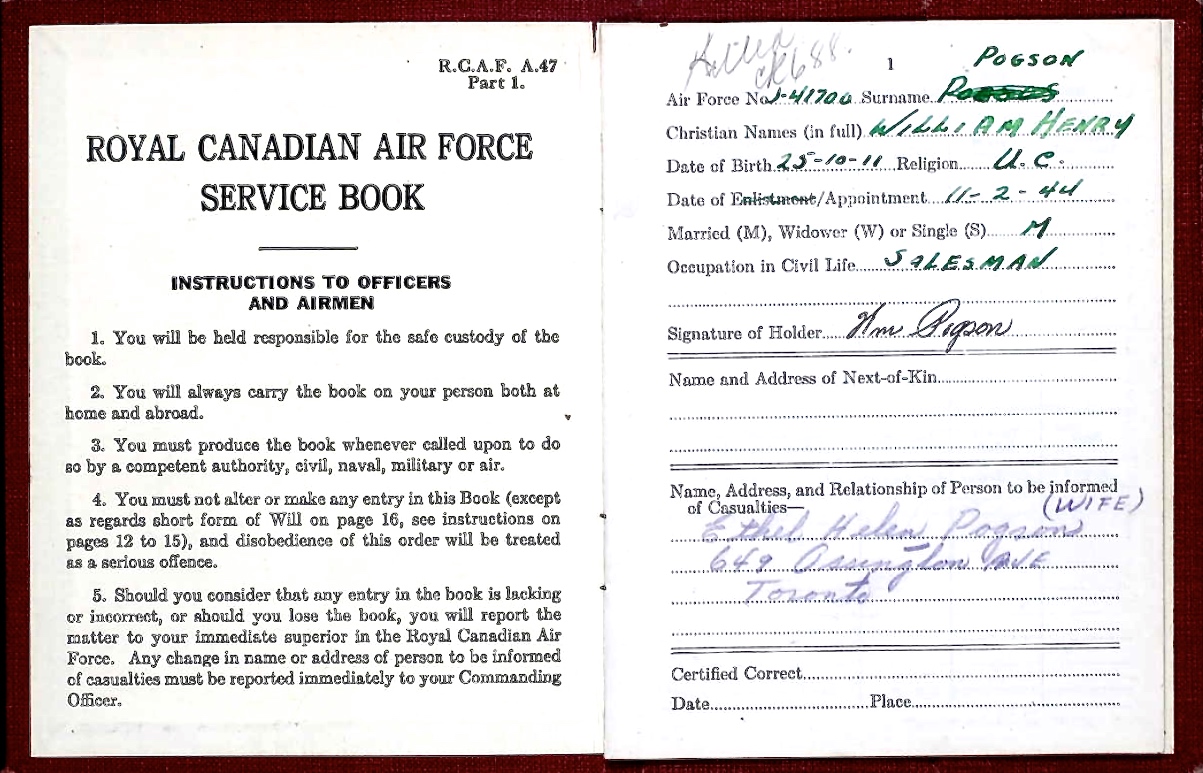 R.C.A.F. A.47
Part 1.
ROYAL CANADIAN AIR FORCE
SERVICE BOOK
INSTRUCTIONS TO OFFICERS
AND AIRMEN
1. You will be held responsible for the safe custody of the
book.
2. You will always carry the book on your person both at
home and abroad.
3. You must produce the book whenever called upon to do
so by a competent authority, civil, naval, military or air.
4. You must not alter or make any entry in this Book (except
as regards short form of Will on page 16, see instructions on
pages 12 to 15), and disobedience of this order will be treated
as a serious offence.
5. Should you consider that any entry in the book is lacking
or incorrect, or should you lose the book, you will report the
matter to your immediate superior in the Royal Canadian Air
Force. Any change in name or address of person to be informed
of casualties must be reported immediately to your Commanding
Officer.
1
POGSON
Air Force No. J-41700 Surname
Christian Names (in full) WILLIAM HENRY
Date of Birth 25-10-11 Religion U.C.
Date of Enlistment/Appointment 11-2-44
Married (M), Widower (W) or Single (S) M
Occupation in Civil Life SALESMAN
Signature of Holder Wm Pogson
Name and Address of Next-of-Kin
Name, Address, and Relationship of Person to be informed
of Casualties— (WIFE)
Ethel Helen Pogson
649 Ossington AVE
Toronto
Certified Correct
Date Place